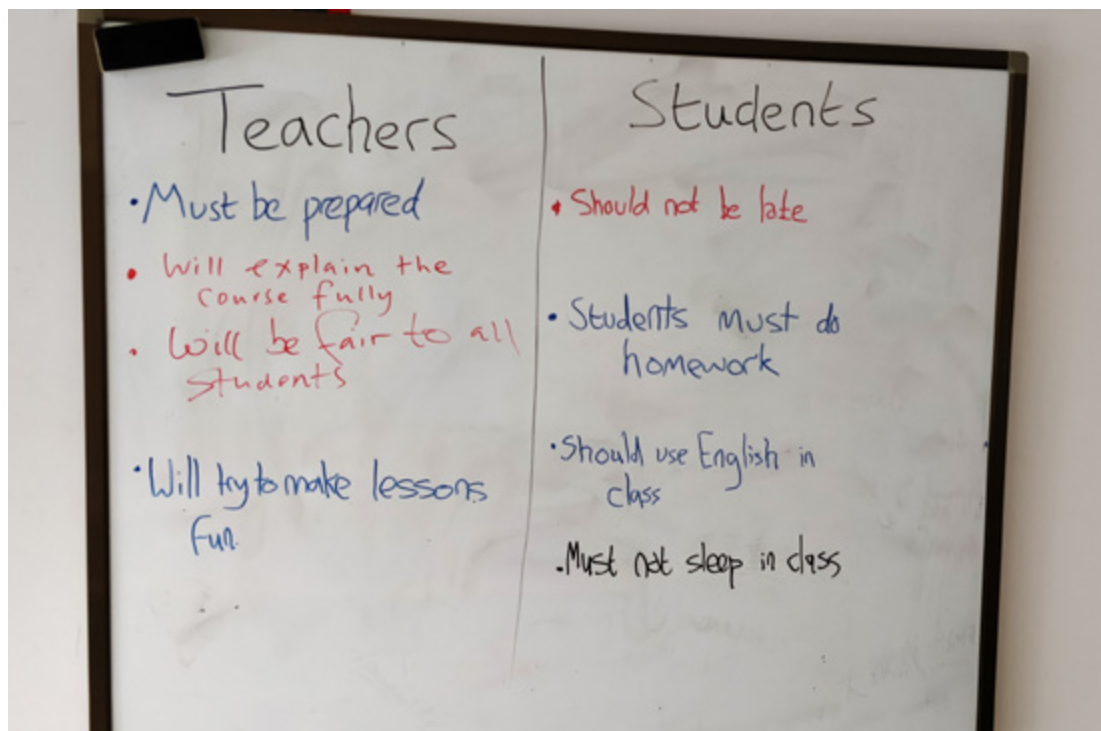 Teachers
• Must be prepared
• Will explain the
course fully
• Will be fair to all
students
• Will try to make lessons
fun.
Students
• Should not be late
• Students must do
homework
• Should use English in
class
• Must not sleep in class